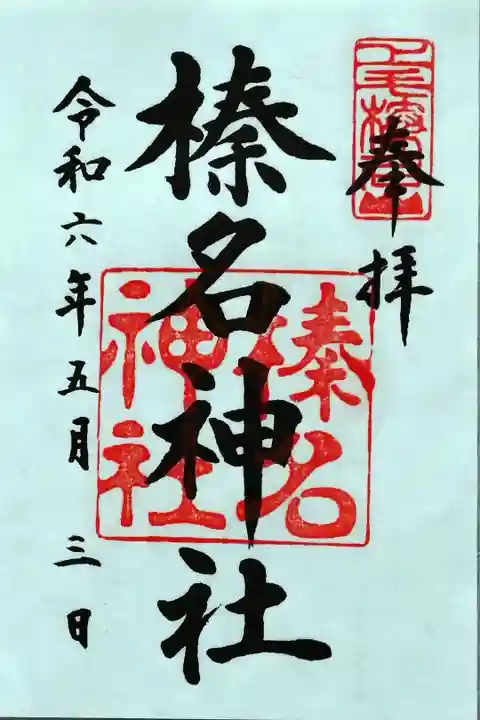 奉拝
榛名神社
令和六年五月三日
榛名
神社